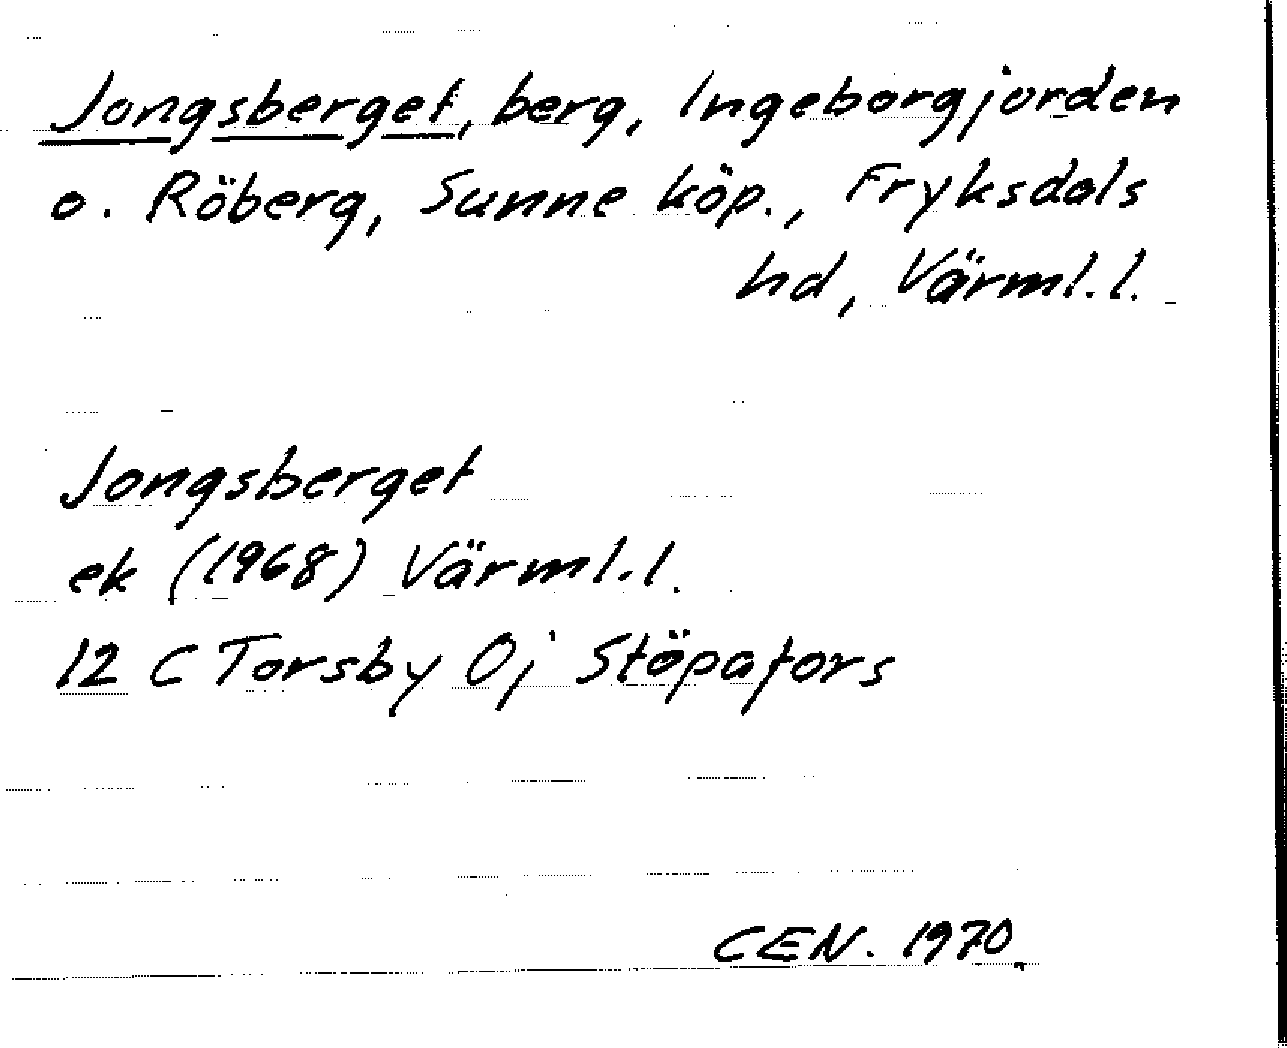 Jongsberget, berg, Ingeborgjorden
o. Röberg, Sunne köp., Fryksdals
hd, Värml.l.
Jongsberget
ek (1968) Värml.l.
12 C Torsby 0j Stöpafors
CEN. 1970.